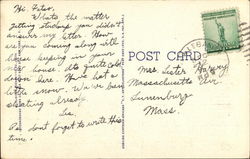 Hi Peter,
Whats the matter
getting stuckup you didn't
answer my letter. How
are you coming along with
house keeping in your
new house. It's quite cold
down here. Have had a
little snow. We've been
skating already.
Lis.
P.S. dont forget to write this
time.
POST CARD
Mrs Lester
Massachusetts Ave.
Lunenburg
Mass.